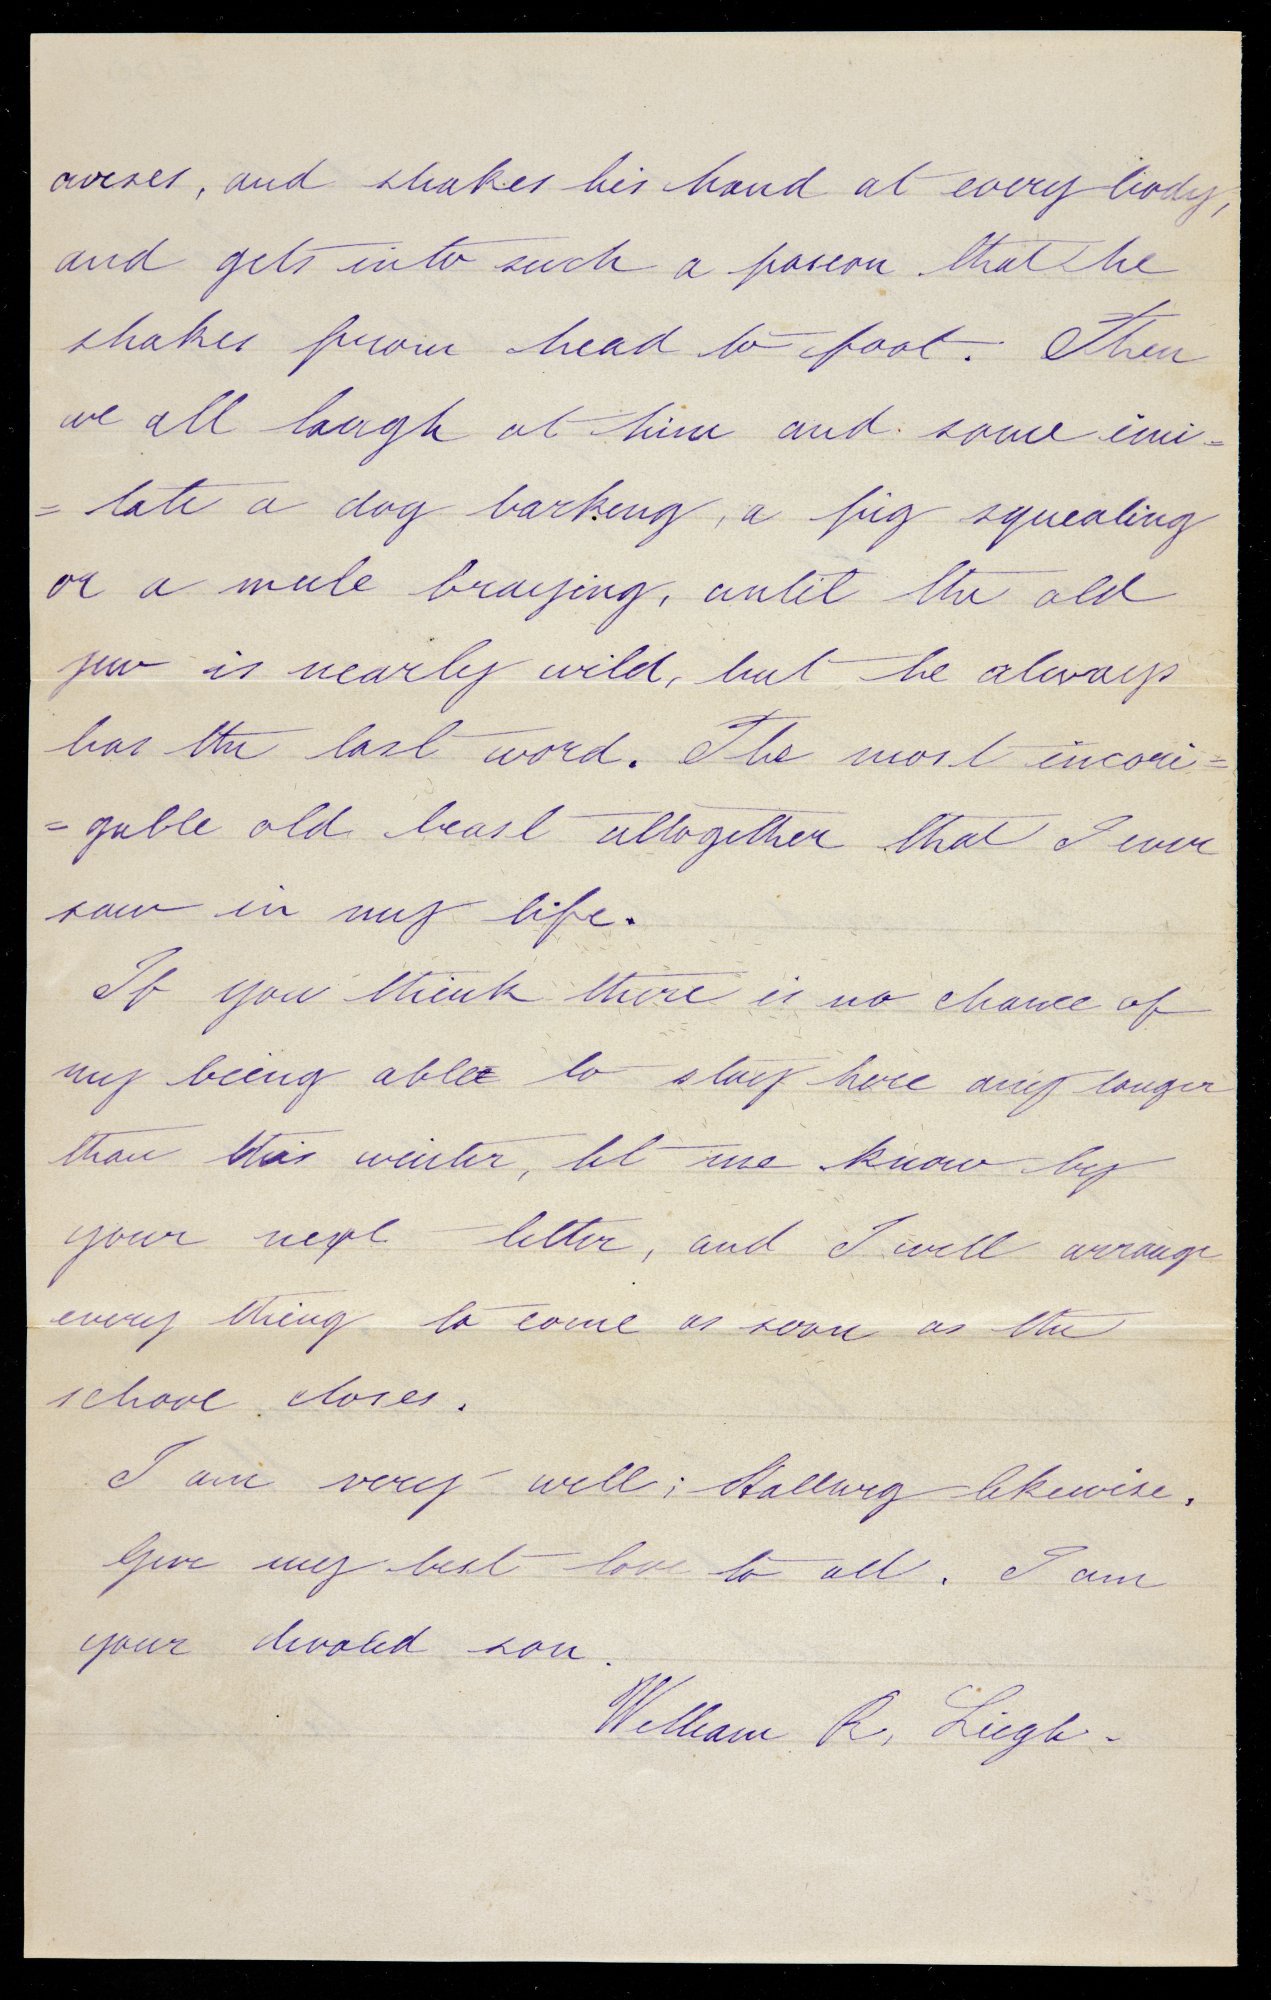 curses, and shakes his hand at every body,
and gets into such a passion that he
shakes from head to foot. Then
we all laugh at him and some imi=
=tate a dog barking, a pig squealing
or a mule braying, until the old
jew is nearly wild, but he always
has the last word. The most incori=
=gable old beast altogether that I ever
saw in my life.
If you think there is no chance of
my being able to stay here any longer
than this winter, let me know by
your next letter, and I will arrange
every thing to come as soon as the
school closes.
I am very well; likewise.
Give my best love to all. I am
your devoted son.
William R. Leigh.